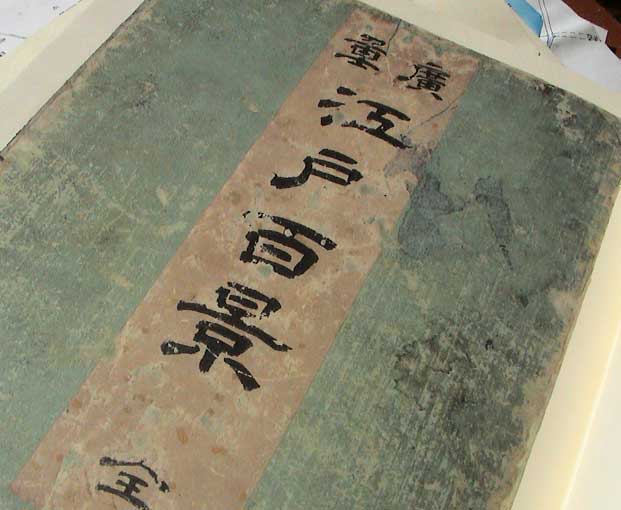 廣重
江戸百景
全